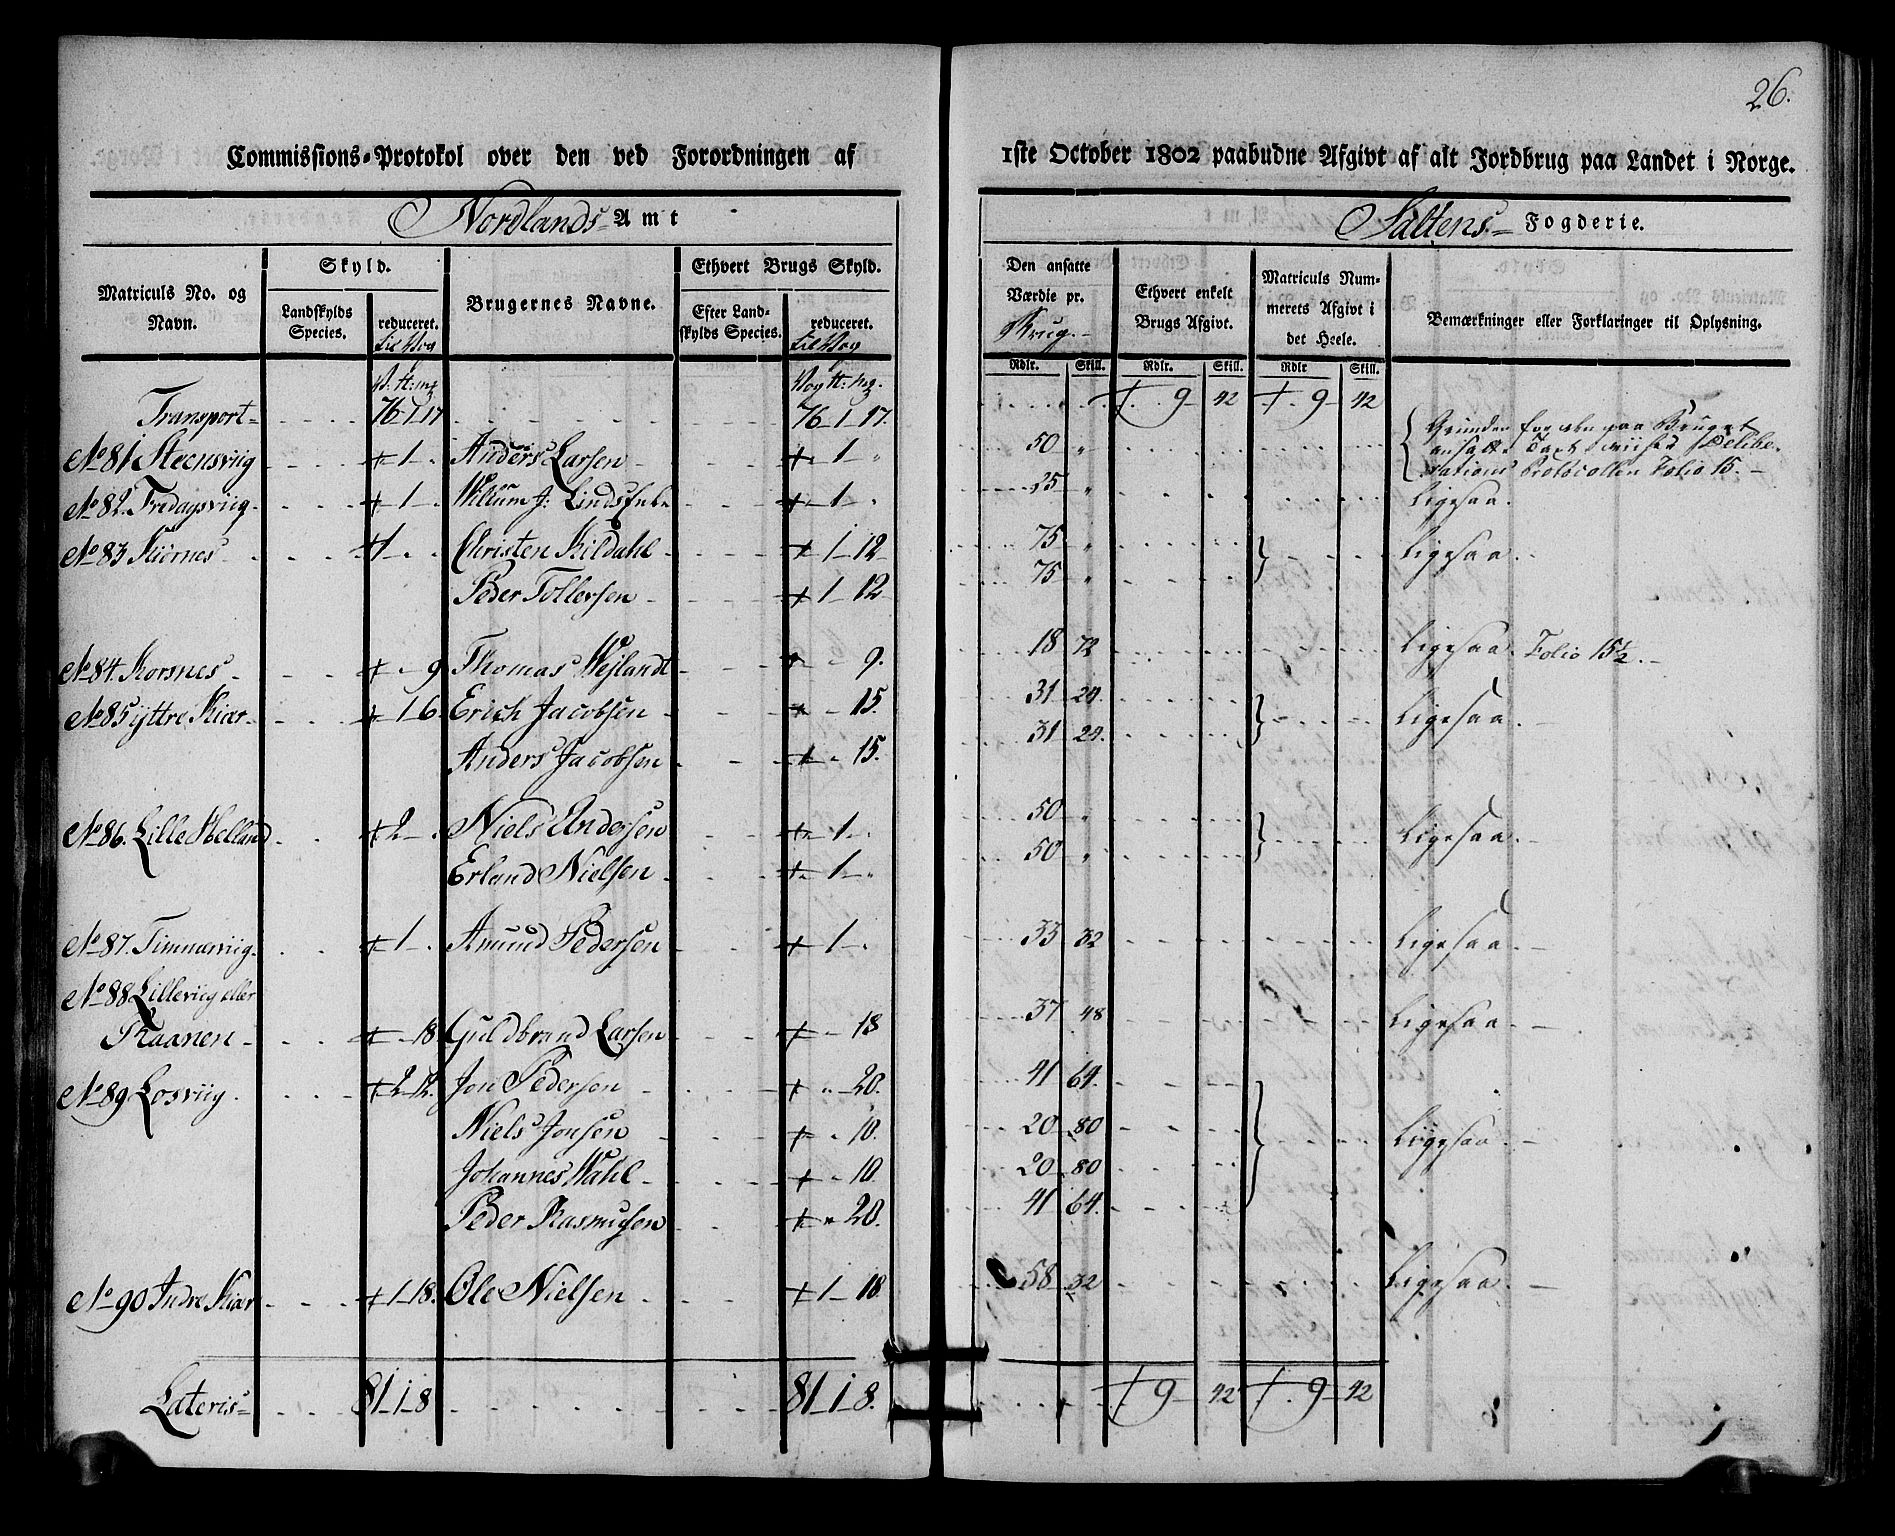 26.
Commissions-Protokol over den ved Forordningen af 1ste October 1802 paabudne Afgivt af alt Jordbrug paa Landet i Norge.
Nordlands Amt
Saltens Fogderie.
Matriculs No. og Navn.
Skyld.
Landskylds Species.
reduceret. til Vog
Brugernes Navne.
Ethvert Brugs Skyld.
Efter Landskylds Species.
reduceret. til Vog
Den ansatte Værdie pr. Brug.
Ethvert enkelt Brugs Afgivt.
Matriculs Nummerets Afgivt i det Heele.
Bemærkninger eller Forklaringer til Oplysning.
Rdlr. Skill. Rdlr. Skill. Rdlr Skill.
Transport 76 1 17 76 1 17. 9 42 9 42
No 81 Steensviig 1 Anders Larsen 1 50 Grunden for den paa Bruget
ansatte Taxt vises Delibe-
rations Protocollen Folio 15.
No 82. Fredagsviig 1 Willum J: 1 25 Ligesaa.
No 83 Kiørnes 1 Christen Kildahl 1 12 75 Ligesaa
Peder Tollefsen 1 12 75
No 84. Korsnes 9 Thomas Wejlandt 9. 18 72 Ligesaa Folio 15½.
No 85 yttre Kiær 1 6. Erich Jacobsen 15. 31 24. Ligesaa.
Anders Jacobsen 15. 31 24.
No 86. Lille Helland 2 Niels Andersen 1 50 Ligesaa.
Erland Nielsen 1 50
No 87. Timmerviig 1 Amund Pedersen 1 33 32 Ligesaa.
No 88 Lilleviig eller
Raanen 18. Guldbrand Larsen 18 37 48 Ligesaa.
No 89 Losviig. 2 12. Jon Pedersen 20. 41 64. Ligesaa.
Niels Jonsen 10. 20 80
Johannes Wahl 10. 20 80
Peder Rasmussen 20. 41 64.
No 90 Indre Kiær 1 18. Ole Nielsen 1 18. 58 32 Ligesaa.
Lateris 81 1 8 81 1 8. 9 42 9 42